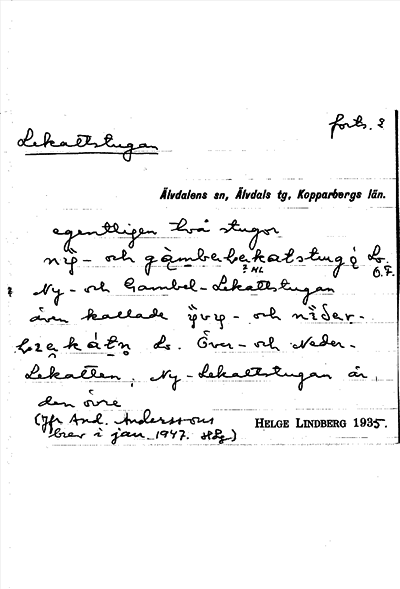 forts. 2
Lekattstugan
Älvdalens sn, Älvdals tg, Kopparbergs län.
egentligen två stugor
nỳ- och gàmbel- Lo.
? HL
O. F.
Ny- och Gambel-Lekattstugan
även kallade och
Lo. Över- och Neder-
Lekatten. Ny-Lekattstugan är
den övre
(Jfr And. Anderssons
brev i jan. 1947. HLg)
HELGE LINDBERG 1935.